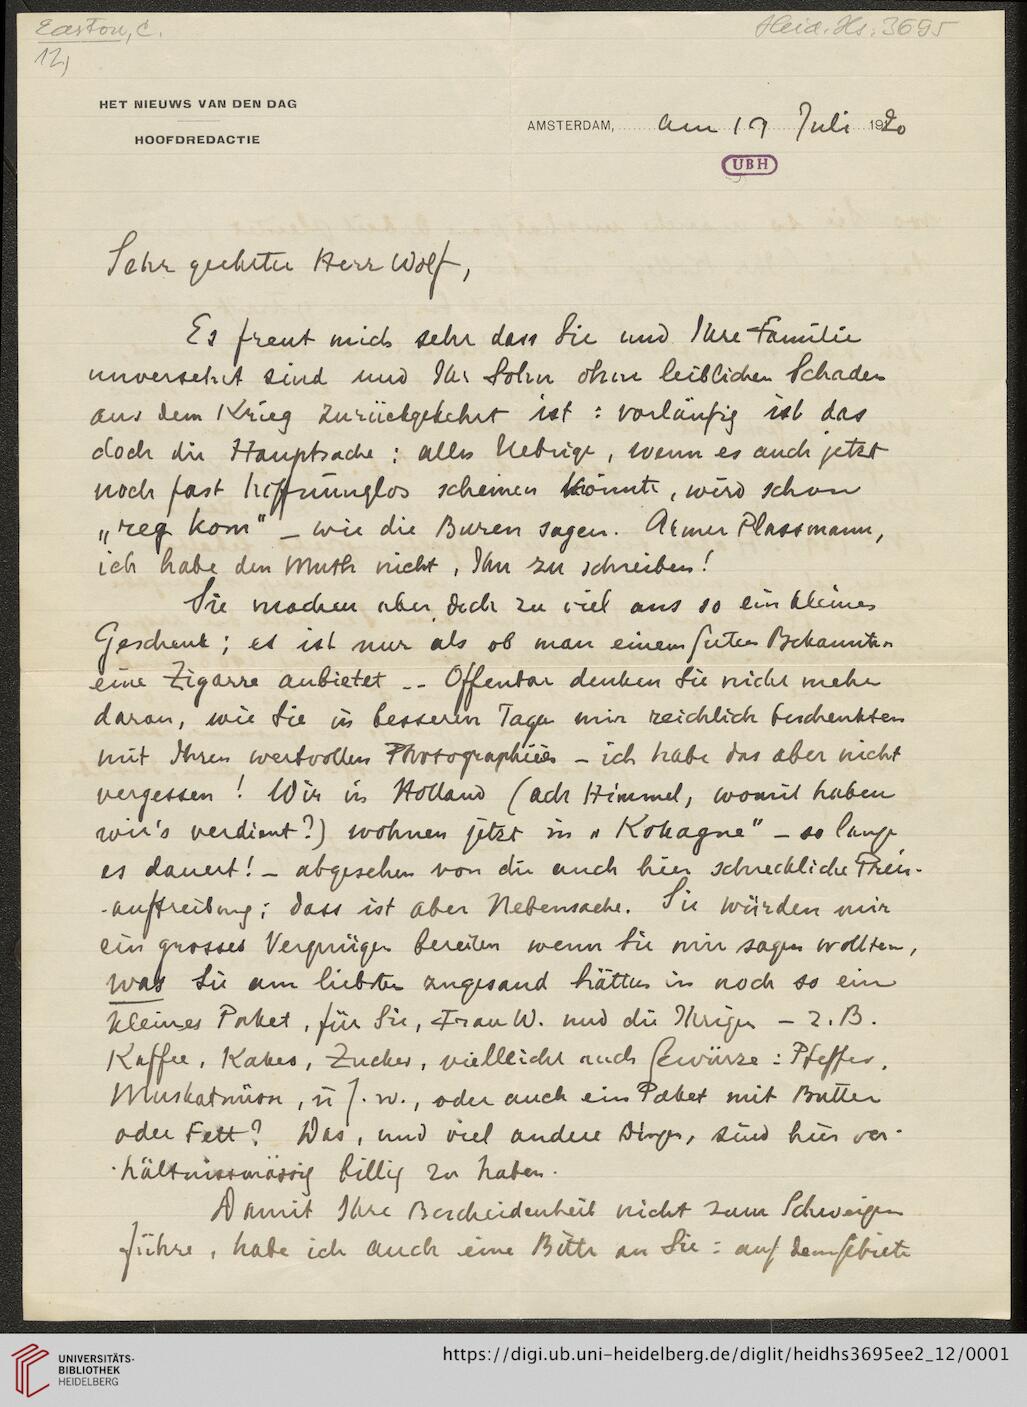 Easton, C.
12)
Heid. Hs. 3695
HET NIEUWS VAN DEN DAG
HOOFDREDACTIE
AMSTERDAM, am 19 Juli 1920
UBH
Sehr geehrter Herr Wolf,
Es freut mich sehr dass Sie und Ihre Familie
unversehrt sind und Ihr Sohn ohne leiblichen Schaden
aus dem Krieg zurückgekehrt ist : vorläufig ist das
doch die Hauptsache ; alles Uebrige, wenn es auch jetzt
noch fast hoffnunglos scheinen könnte, wird schon
„reg kom" – wie die Buren sagen. Armer Plassmann,
ich habe den Muth nicht, Ihm zu schreiben!
Sie machen aber doch zu viel aus so ein kleines
Geschenk ; es ist nur als ob man einem guten Bekannten
eine Zigarre anbietet -- Offenbar denken Sie nicht mehr
daran, wie Sie in besseren Tagen mir reichlich beschenkten
mit Ihren wertvollen Photographieën – ich habe das aber nicht
vergessen ! Wir in Holland (ach Himmel, womit haben
wir's verdient?) wohnen jetzt in „Kokagne" – so lange
es dauert! – abgesehen von die auch hier schreckliche Preis-
-auftreibung ; dass ist aber Nebensache. Sie würden mir
ein grosses Vergnügen bereiten wenn Sie mir sagen wollten,
was Sie am liebsten zugesand hätten in noch so ein
kleines Paket, für Sie, Frau W. und die Ihrigen – z.B.
Kaffee, Kakes, Zucker, vielleicht auch Gewürze : Pfeffer,
Muskatnüsse, u.s.w., oder auch ein Paket mit Butter
oder Fett? Das, und viel andere Dinge, sind hier ver-
-hältnissmässig billig zu haben.
Damit Ihre Bescheidenheit nicht zum Schweigen
führe, habe ich auch eine Bitte an Sie : auf dem Gebiete
UNIVERSITÄTS-
BIBLIOTHEK
HEIDELBERG
https://digi.ub.uni-heidelberg.de/diglit/heidhs3695ee2_12/0001